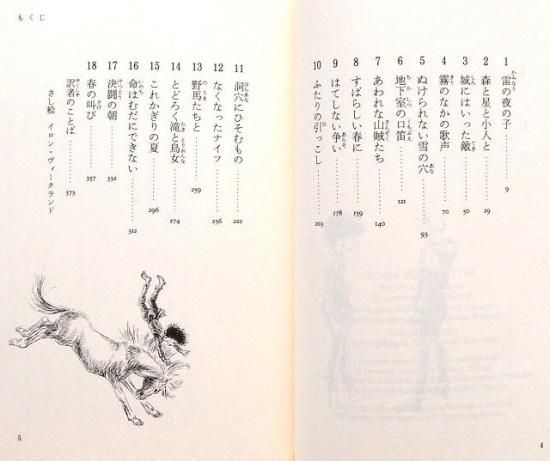 もくじ
1 雷の夜の子… 9
2 森と星と小人と… 29
3 城にはいった敵… 50
4 霧のなかの歌声… 70
5 ぬけられない雪の穴… 93
6 地下室の口笛… 121
7 あわれな山賊たち… 140
8 すばらしい春に… 159
9 はてしない争い… 178
10 ふたりの引っこし… 203
11 洞穴にひそむもの… 222
12 なくなったナイフ… 236
13 野馬たちと… 259
14 とどろく滝と鳥女… 274
15 これかぎりの夏… 296
16 命はむだにできない… 312
17 決闘の朝… 332
18 春の叫び… 357
訳者のことば… 373
さし絵 イロン・ヴィークランド
4
5